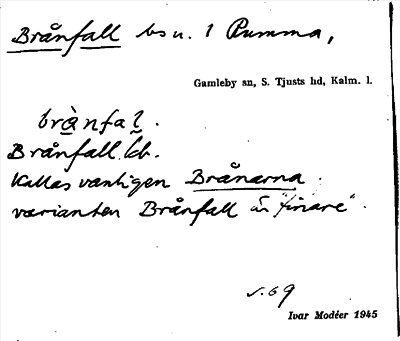 Brånfall bs u. 1 Rumma,
Gamleby sn, S. Tjusts hd, Kalm. l.
brànfaḷ.
Brånfall kb.
Kallas vanligen Brånarna.
varianten Brånfall är "finare".
s. 69
Ivar Modéer 1945